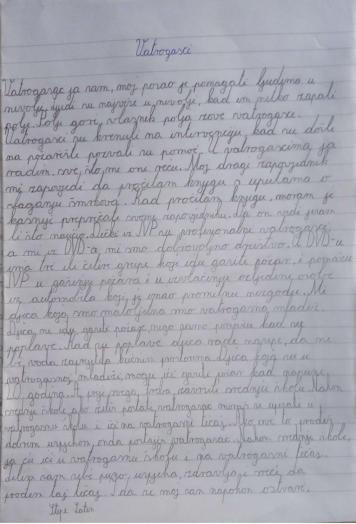 Vatrogasci
Vatrogasac ja sam, moj posao je pomagati ljudima u
nevolji, ljudi su najviše u nevolji, kad im netko zapali
polje. Polje gori, vlasnik polja zove vatrogasce.
Vatrogasci su krenuli na intervenciju, kad su došli
na požarište pozvali su pomoć. U vatrogascima ja
radim sve, što me oni reću. Moj dragi zapovjednik
mi zapovjedi da pročitam knjigu o uputama o
gašenju Kad pročitam knjigu, moram je
kasnije prepričati svojem zapovjedniku, da on vidi jesam
li što naučio. Dečki iz JVP su profesionalni vatrogasci,
a mi iz DVD-a, mi smo dobrovoljno društvo. U DVD-u
ima tri ili četiri grupe koje idu gasiti požar, i pomažu
JVP u gašenju požara i u izvlačenju ozlijeđene osobe
iz automobila koji je imao prometnu nezgodu. Mi
djeca koja smo maloljetna smo vatrogasna mladež.
Djeca, ne idu gasiti požar, nego samo pomažu kad su
poplave. Kad su poplave djeca rade nasipe, da ne
bi voda kućnim djeca koja su u
vatrogasnoj mladeži, mogu ići gasiti požar kad napune
godina. I prije nego, treba, završiti srednju školu. Nakon
srednje škole ako želim postati vatrogasac moram se upisati u
vatrogasnu školu i ići na vatrogasni tečaj. Ko sve to prođe s
dobrim uspjehom, onda postaje vatrogasac. Nakon srednje škole,
ja ću ići u vatrogasnu školu i na vatrogasni tečaj.
Želim sam sebi puno, uspjeha, zdravlja i sreće, da
prođem taj tečaj i da se moj san napokon ostvari.